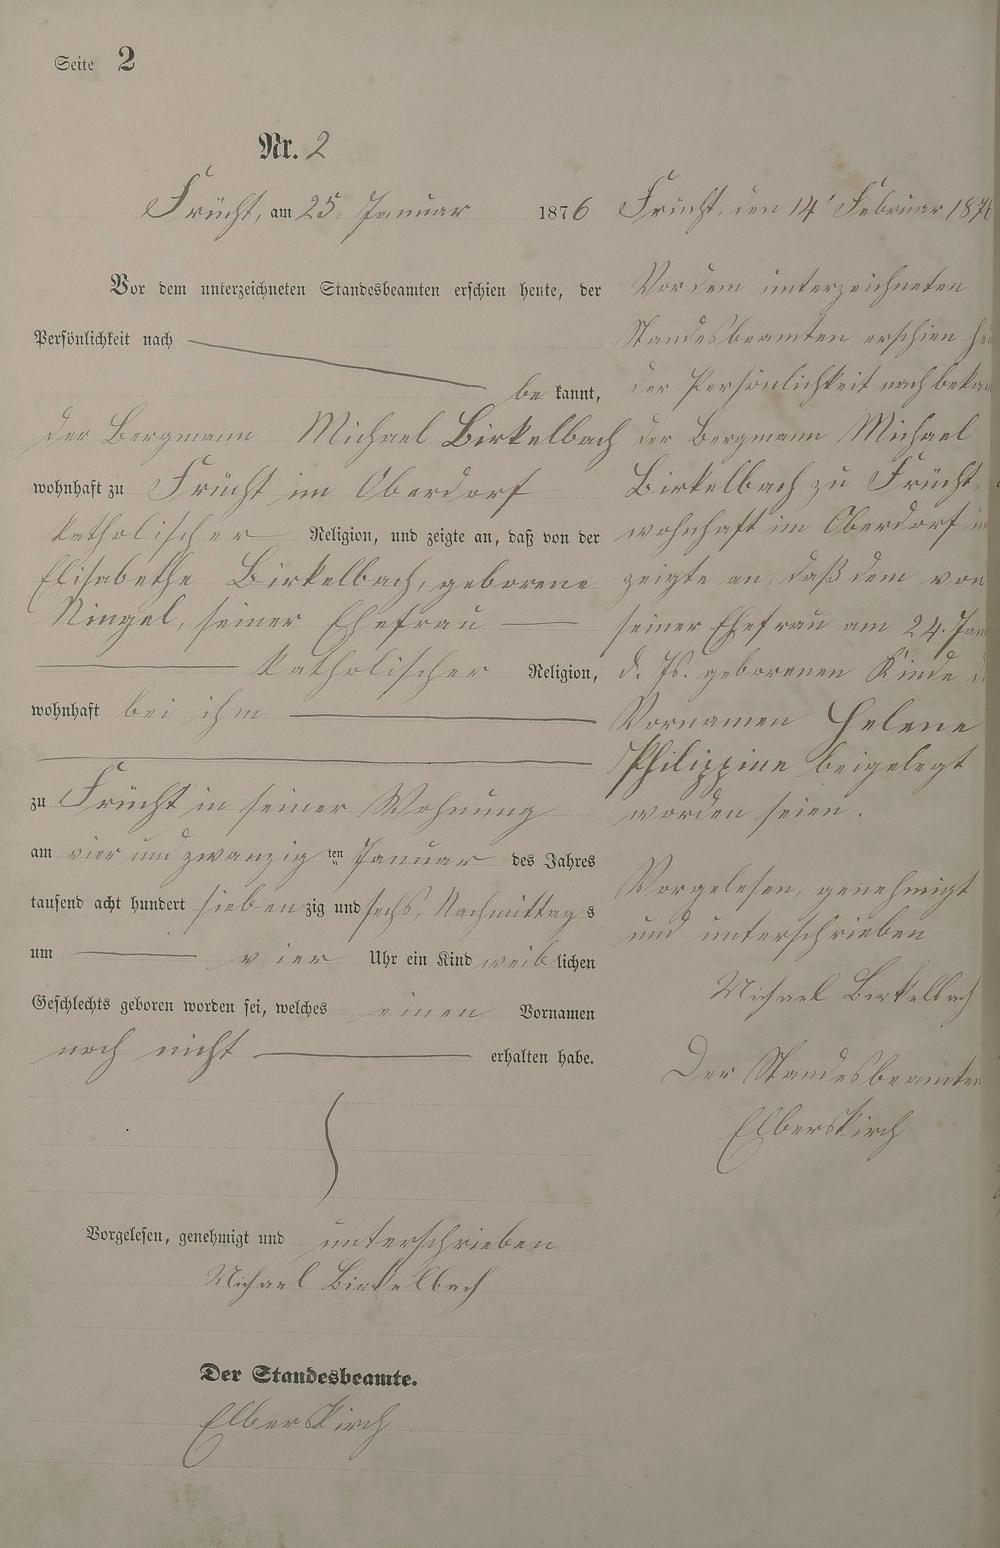 Seite 2
Nr. 2
Frücht, am 25. Januar 1876
Vor dem unterzeichneten Standesbeamten erschien heute, der
Persönlichkeit nach
be kannt,
der Bergmann Michael Birkelbach
wohnhaft zu Frücht im Oberdorf
katholischer Religion, und zeigte an, daß von der
Elisabethe Birkelbach, geborene
Ningel, seiner Ehefrau
katholischer Religion,
wohnhaft bei ihm
zu Frücht in seiner Wohnung
am vier und zwanzig ten Januar des Jahres
tausend acht hundert siebenzig und sechs, Nachmittags
um vier Uhr ein Kind weiblichen
Geschlechts geboren worden sei, welches einen Vornamen
noch nicht erhalten habe.
Vorgelesen, genehmigt und unterschrieben
Michael Birkelbach
Der Standesbeamte.
Elberskirch
Frücht, den 14' Februar 1876
Vor dem unterzeichneten
Standesbeamten erschien
der Persönlichkeit nach
der Bergmann Michael
Birkelbach zu Frücht,
wohnhaft im Oberdorf
zeigte an, daß dem von
seiner Ehefrau am 24. Jan
d. Js. geborenen Kinde
Vornamen Helene
Philippine beigelegt
worden seien.
Vorgelesen, genehmigt
und unterschrieben
Michael Birkelbach
Der Standesbeamte
Elberskirch